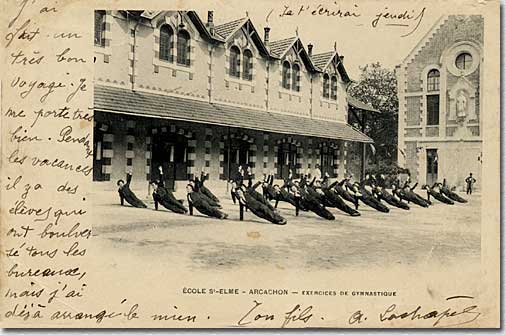 (Je t'écrirai jeudi)
J'ai
fait un
très bon
voyage. Je
me porte très
bien. Pendant
les vacances
il y a des
élèves qui
ont boulver
sé tous les
bureaux,
mais j'ai
déjà arrangé le mien. Ton fils. A.
ÉCOLE St-ELME - ARCACHON — EXERCICES DE GYMNASTIQUE